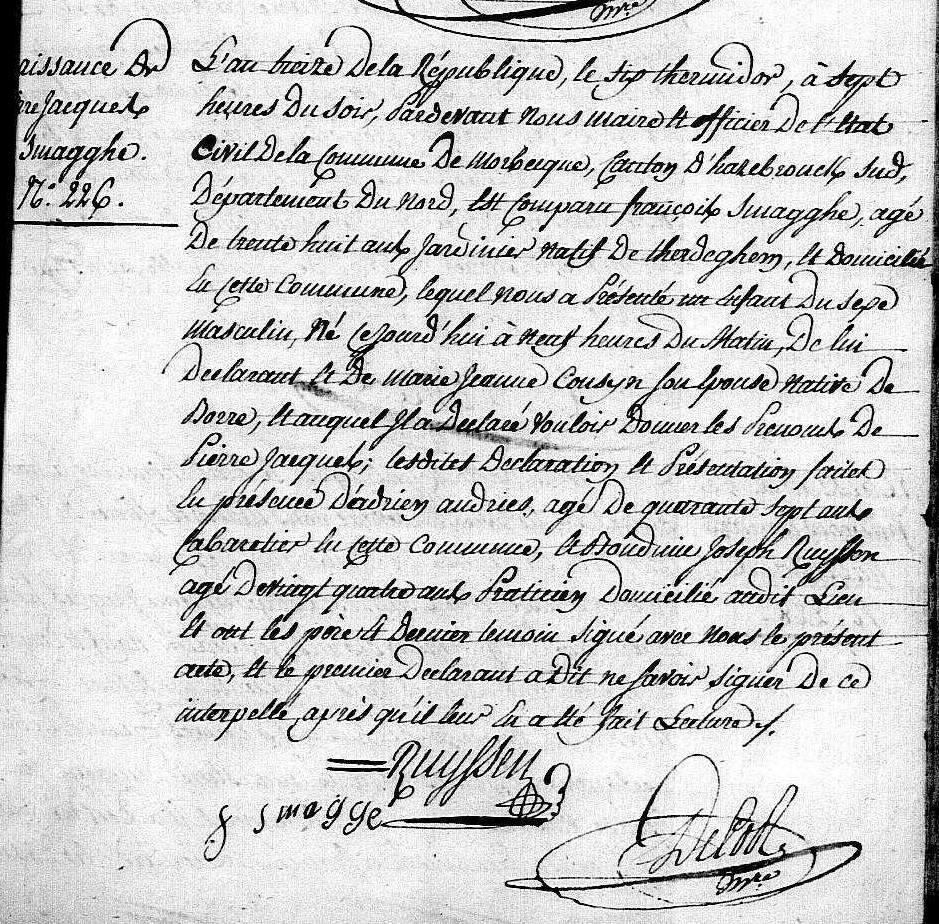 mre
aissance De
rre Jacques
Smagghe.
N.o 226.
L'an treize De la République, le six thermidor, à Sept
heures Du Soir, Pardevant Nous Maire et officier De l'Etat
Civil De la Commune De Morbecque, Canton D'hazebrouck Sud,
Département Du Nord, Est Comparu françois Smagghe, agé
De trente huit ans Jardinier Natif De therdeghem, et Domicilié
En Cette Commune, lequel Nous a Présenté un Enfant Du Sexe
Masculin, Né Cejourd'hui à Neuf heures Du Matin, De lui
Declarant Et De Marie Jeanne Cousyn Son Epouse Native De
Borre, et auquel Il a Declaré Vouloir Donner les Prenoms De
Pierre Jacques; lesdites Declaration et Présentation faites
En présence D'adrien andries, agé De quarante Sept ans
Cabaretier En Cette Commune, et Boudouin Joseph Ruyssen
agé De vingt quatre ans Praticien Domicilié audit Lieu
Et ont les père et Dernier temoin Signé avec Nous le présent
acte, et le premier Declarant a Dit ne Savoir Signer De ce
interpellé, après qu'il leur En a été fait Lecture./.
Ruyssen
f smagge
mre